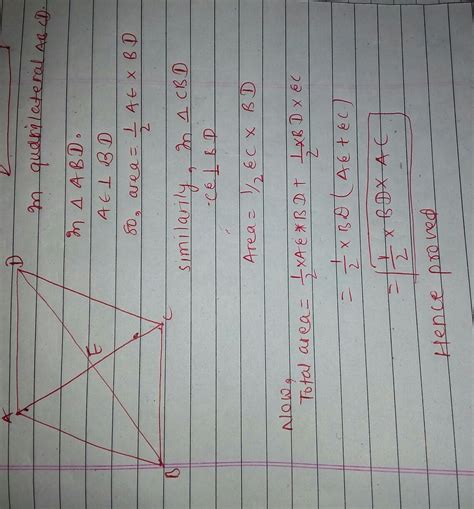 In quadrilateral ABCD.
In Δ ABD,
AE ⊥ BD
So, area = 1/2 AE × BD
similarily, In Δ CBD
CE ⊥ BD
Area = 1/2 EC × BD
Now,
Total area = 1/2 × AE × BD + 1/2 × BD × EC
= 1/2 × BD (AE + EC)
= 1/2 × BD × AC
Hence proved
A
D
E
B
C